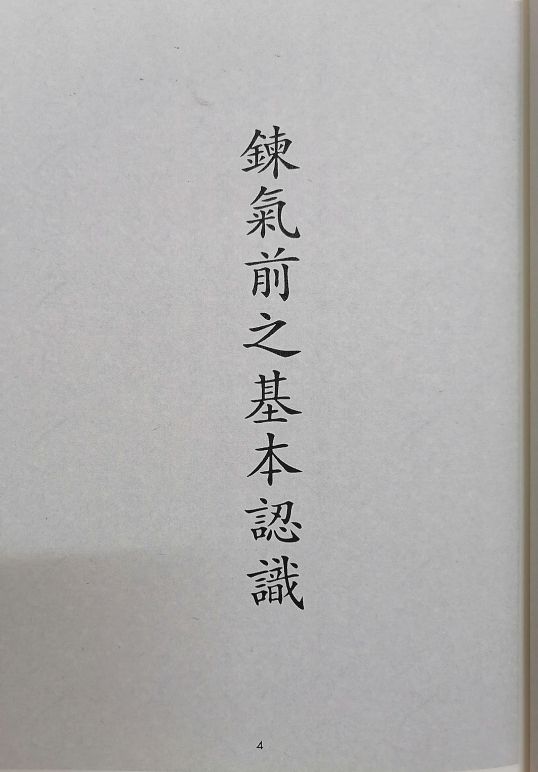 鍊氣前之基本認識
4